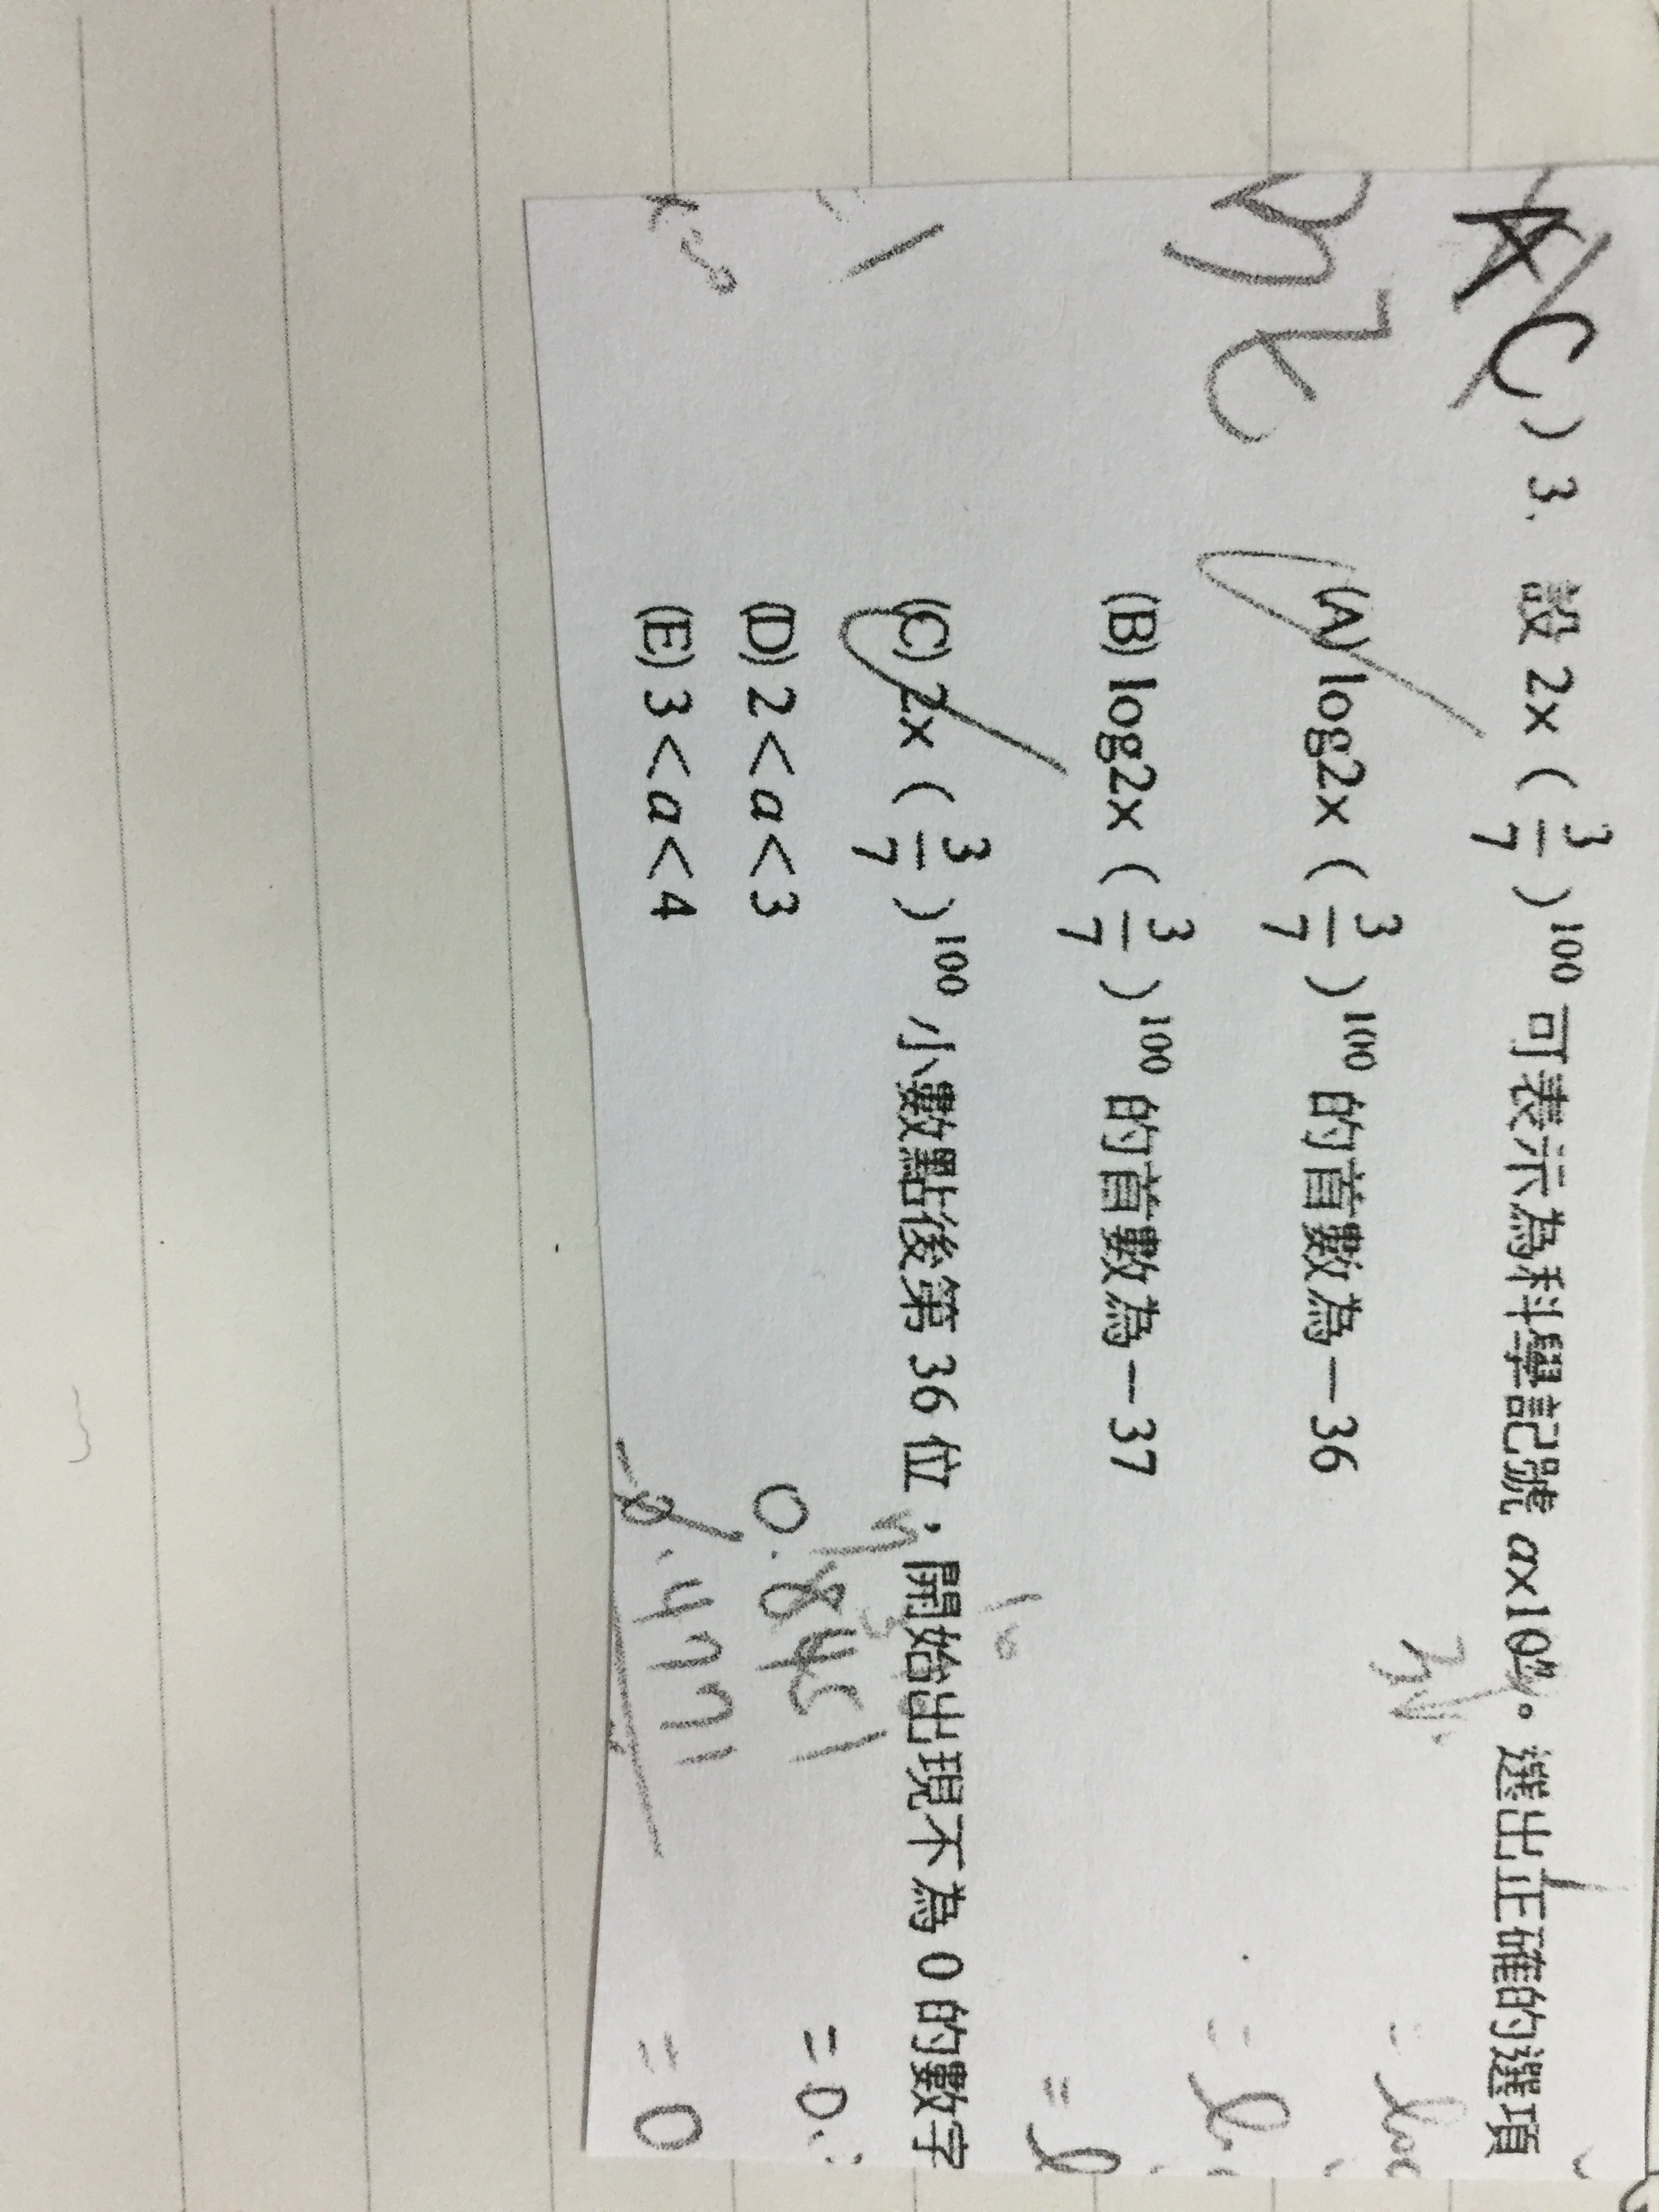 AC ) 3. 設 2x ( 3/7 )^100 可表示為科學記號 ax10^n。選出正確的選項
(A) log2x ( 3/7 )^100 的首數為－36
(B) log2x ( 3/7 )^100 的首數為－37
(C) 2x ( 3/7 )^100 小數點後第 36 位，開始出現不為 0 的數字
(D) 2<a<3
(E) 3<a<4
0.8451
0.4771
= 0.
= 0